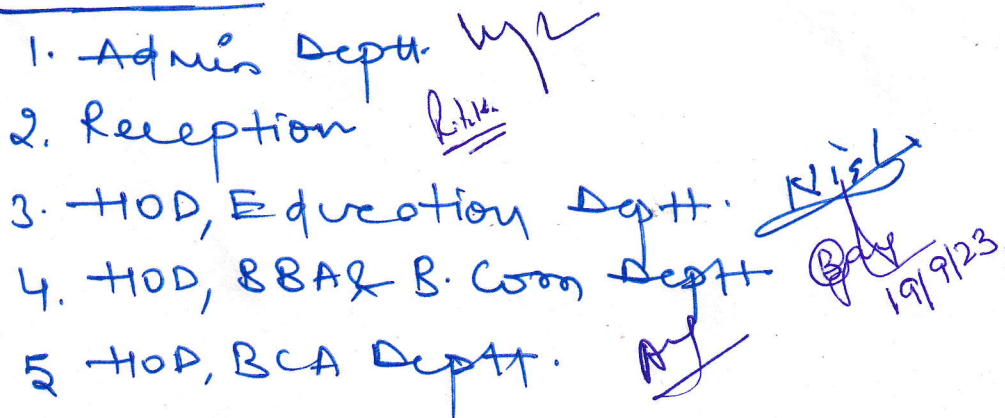 1. Admin Deptt.
2. Reception
3. HOD, Education Deptt.
4. HOD, BBA & B. Com Deptt
19/9/23
5 HOD, BCA Deptt.